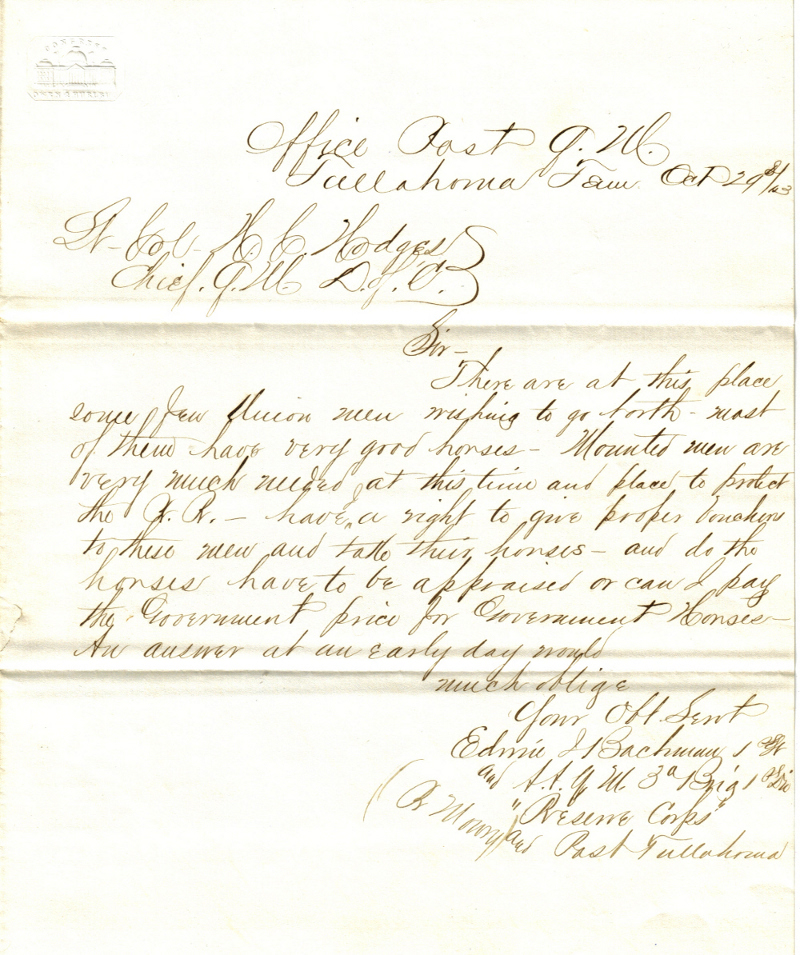 CONGRESS
Office Post Q. M.
Tullahoma Tenn Oct 29th/63
Lt-Col- H. C. Hodges
Chief. Q. M D. of. C.
Sir-
There are at this place
some few Union men wishing to go North - most
of them have very good horses - Mounted men are
very much needed at this time and place to protect
the R. R. - have I a right to give proper Vouchers
to these men and take their horses - and do the
horses have to be appraised or can I pay
the Government price for Government Horses-
An answer at an early day would
much oblige
Your Obt. Servt
Edwin J Bachman 1st Lt
and A. A. Q M 3d Brig 1st Div
"Reserve Corps"
and Post Tullahoma